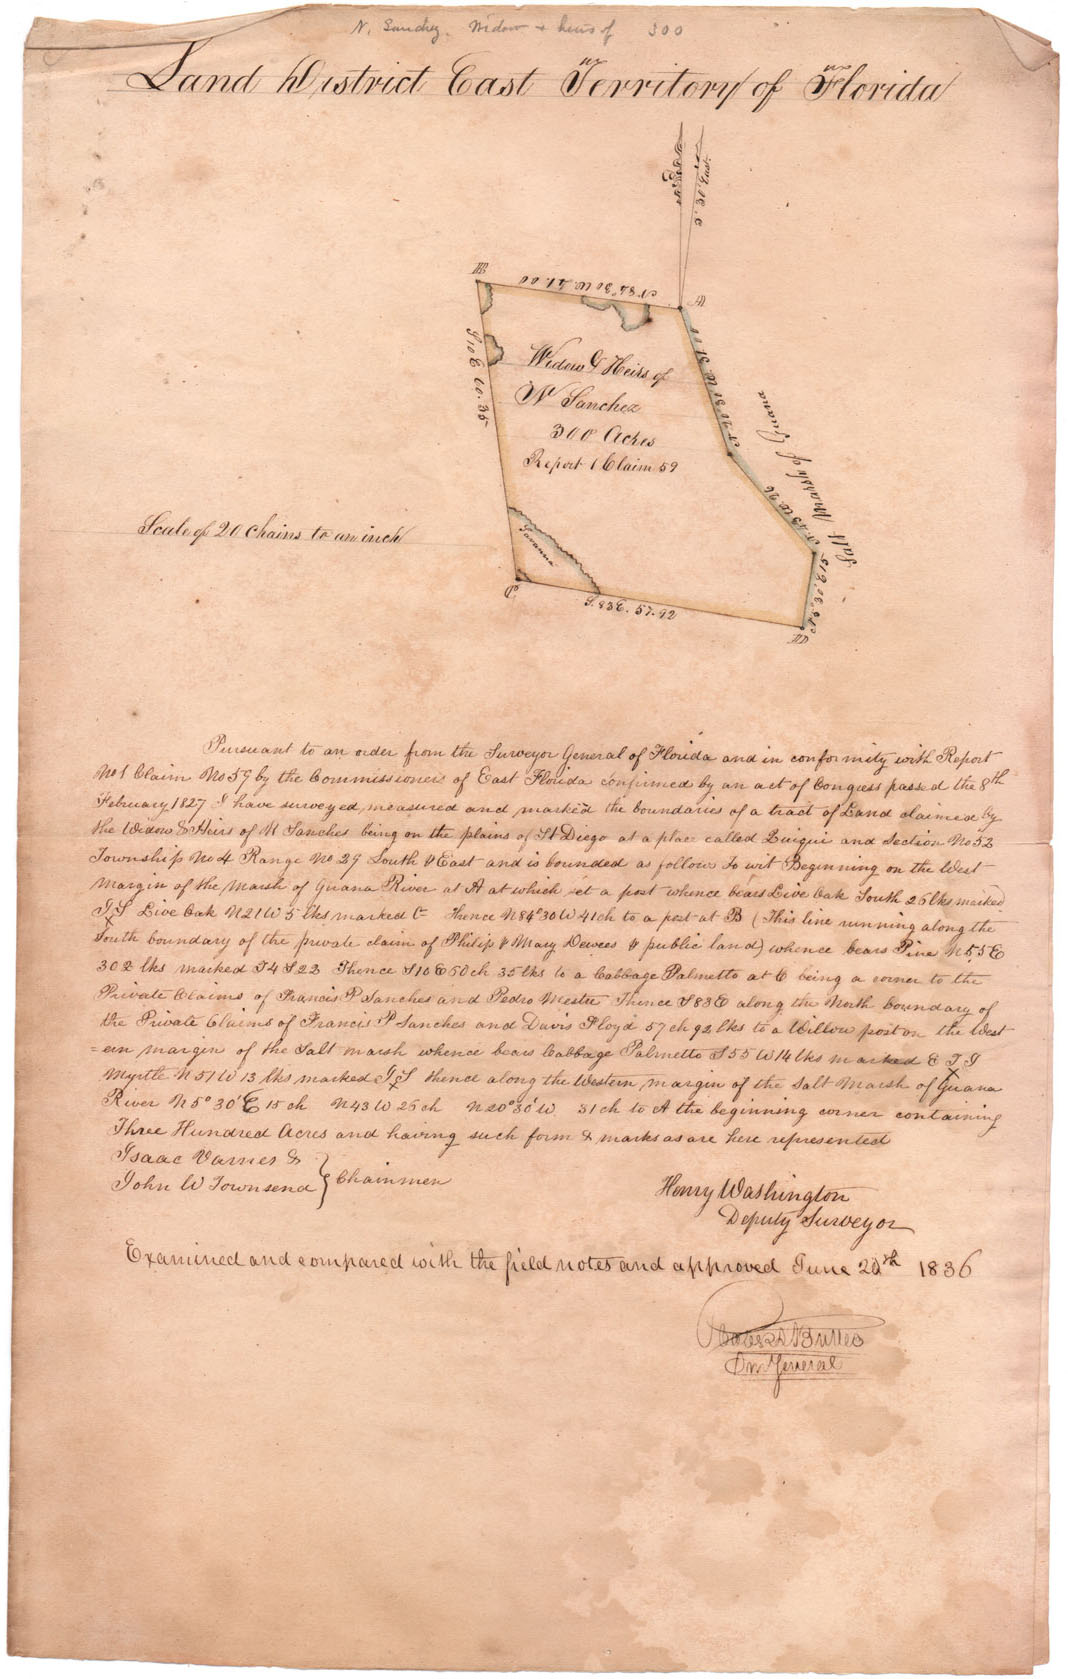 N. Sanchez. Widow & heirs of 300
Land District East Territory of Florida
Var. 6.30 East.
B
N 84° 30 W 41.00
A
S 10 E 60.35
N 20 30 W 31.00
Widow & Heirs of
N Sanchez
300 Acres
Report 1 Claim 59
Salt Marsh of Guana
N 43 W 26
Savanna
Scale of 20 chains to an inch
C
S. 83 E. 57.92
D
Pursuant to an order from the Surveyor General of Florida and in conformity with Report
No 1 Claim No 59 by the Commissioners of East Florida confirmed by an act of Congress passed the 8th
February 1827 I have surveyed, measured and marked the boundaries of a tract of Land claimed by
the Widow & Heirs of N Sanches being on the plains of St Diego at a place called and Section No 52
Township No 4 Range No 29 South & East and is bounded as follow to wit Beginning on the West
margin of the Marsh of Guana River at A at which set a post whence bears Live Oak South 26 lks marked
Live Oak N 21 W 5 lks marked Thence N 84° 30 W 41 ch to a post at B (This line running along the
South boundary of the private claim of Philip & Mary Dewees & public land) whence bears Pine N 55 E
302 lks marked T4 S22 Thence S10 E 50 ch 35 lks to a Cabbage Palmetto at C being a corner to the
Private Claims of Francis P Sanches and Pedro Mestre Thence S 83 E along the North boundary of
the Private Claims of Francis P Sanches and Davis Floyd 57 ch 92 lks to a Willow post on the West
=ern margin of the Salt marsh whence bears Cabbage Palmetto S 55 W 14 lks marked
Myrtle N 51 W 13 lks marked thence along the Western margin of the Salt Marsh of Guana
River N 5° 30' E 15 ch N 43 W 26 ch N 20° 30' W. 31 ch to A the beginning corner containing
Three Hundred Acres and having such form & marks as are here represented
Isaac Varnes &
John W Townsend } Chainmen
Henry Washington
Deputy Surveyor
Examined and compared with the field notes and approved June 1836
Robert Butler
Sur General